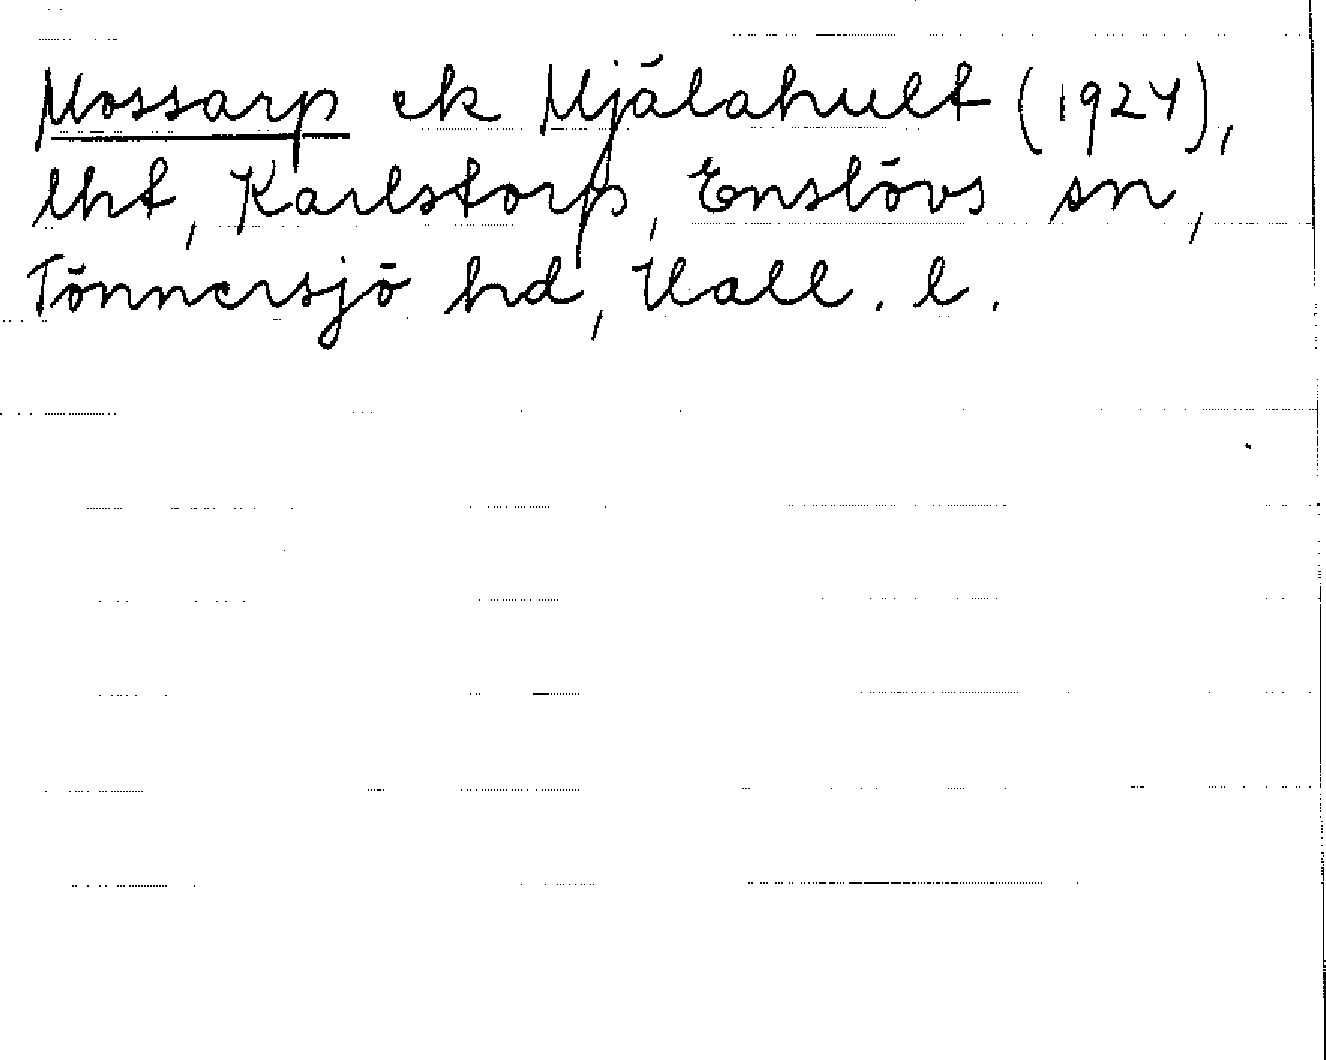 Mossarp ek Mjälahult (1924),
lht, Karlstorp, Enslövs sn,
Tönnersjö hd, Hall. l.